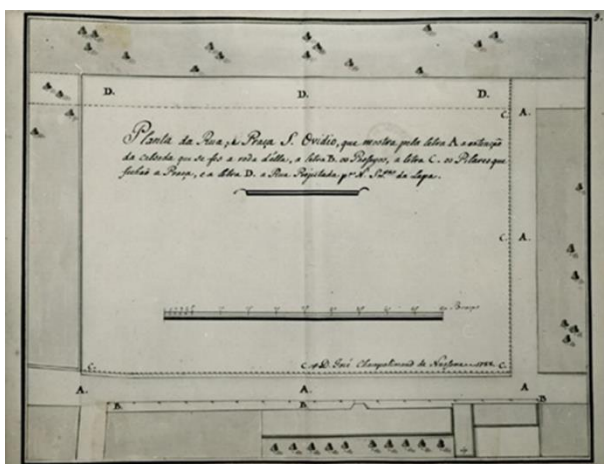 9.
D. D. D.
C. A.
Planta da Rua, e Praça S. Ovidio, que mostra pela letra A. a extenção
da calsada que se fes a roda d'ella, a letra B. os Passeyos, a letra C. os Pilares que
fechaõ a Praça, e a letra D. a Rua Projectada pª N. S.ra da Lapa.
C. A.
Braças
C. José Champalimaud de Nussane 1788 C.
A. A. A
B. B. B